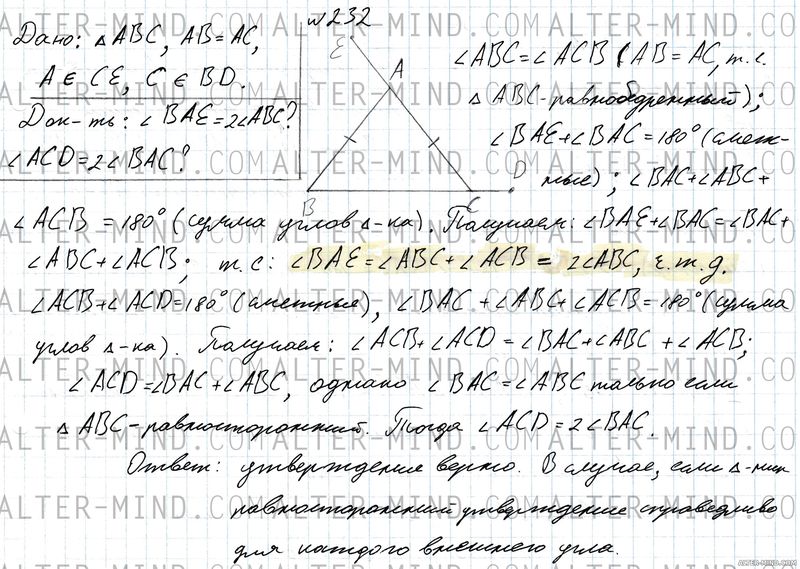 №232
Дано: △ABC, AB=AC,
A∈CE, C∈BD.
Док-ть: ∠BAE=2∠ABC?
∠ACD=2∠BAC?
E
A
B
C
D
∠ABC=∠ACB (AB=AC, т.е.
△ABC-равнобедренный);
∠BAE+∠BAC=180° (смеж-
ные); ∠BAC+∠ABC+
∠ACB=180° (сумма углов △-ка). Получаем: ∠BAE+∠BAC=∠BAC+
∠ABC+∠ACB; т.е: ∠BAE=∠ABC+∠ACB=2∠ABC, ч.т.д.
∠ACB+∠ACD=180° (смежные), ∠BAC+∠ABC+∠ACB=180° (сумма
углов △-ка). Получаем: ∠ACB+∠ACD=∠BAC+∠ABC+∠ACB;
∠ACD=∠BAC+∠ABC, однако ∠BAC=∠ABC только если
△ABC-равносторонний. Тогда ∠ACD=2∠BAC.
Ответ: утверждение верно. В случае, если △-ник
равносторонний утверждение справедливо
для каждого внешнего угла.
ALTER-MIND.COM